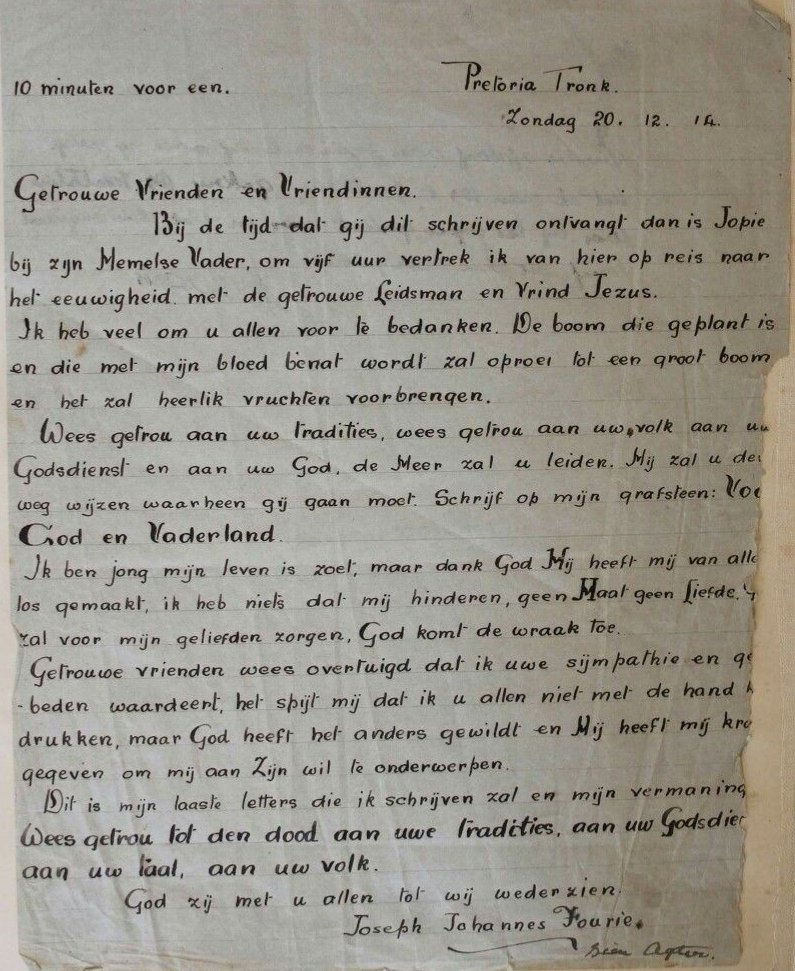 10 minuten voor een.
Pretoria Tronk.
Zondag 20. 12. 14.
Getrouwe Vrienden en Vriendinnen.
Bij de tijd dat gij dit schrijven ontvangt dan is Jopie
bij zijn Hemelse Vader, om vijf uur vertrek ik van hier op reis naar
het eeuwigheid. met de getrouwe Leidsman en Vrind Jezus.
Ik heb veel om u allen voor te bedanken. De boom die geplant is
en die met mijn bloed benat wordt zal oproei tot een groot boom
en het zal heerlik vruchten voorbrengen.
Wees getrou aan uw tradities, wees getrou aan uw volk aan uw
Godsdienst en aan uw God, de Heer zal u leiden. Hij zal u
weg wijzen waarheen gij gaan moet. Schrijf op mijn grafsteen:
God en Vaderland.
Ik ben jong mijn leven is zoet, maar dank God Hij heeft mij van
los gemaakt, ik heb niets dat mij hinderen, geen Haat geen Liefde.
zal voor mijn geliefden zorgen, God komt de wraak toe.
Getrouwe vrienden wees overtuigd dat ik uwe sijmpathie en ge
-beden waardeert, het spijt mij dat ik u allen niet met de hand
drukken, maar God heeft het anders gewildt en Hij heeft mij
gegeven om mij aan Zijn wil te onderwerpen.
Dit is mijn laaste letters die ik schrijven zal en mijn vermaning
Wees getrou tot den dood aan uwe tradities, aan uw
aan uw taal, aan uw volk.
God zij met u allen tot wij wederzien.
Joseph Johannes Fourie.